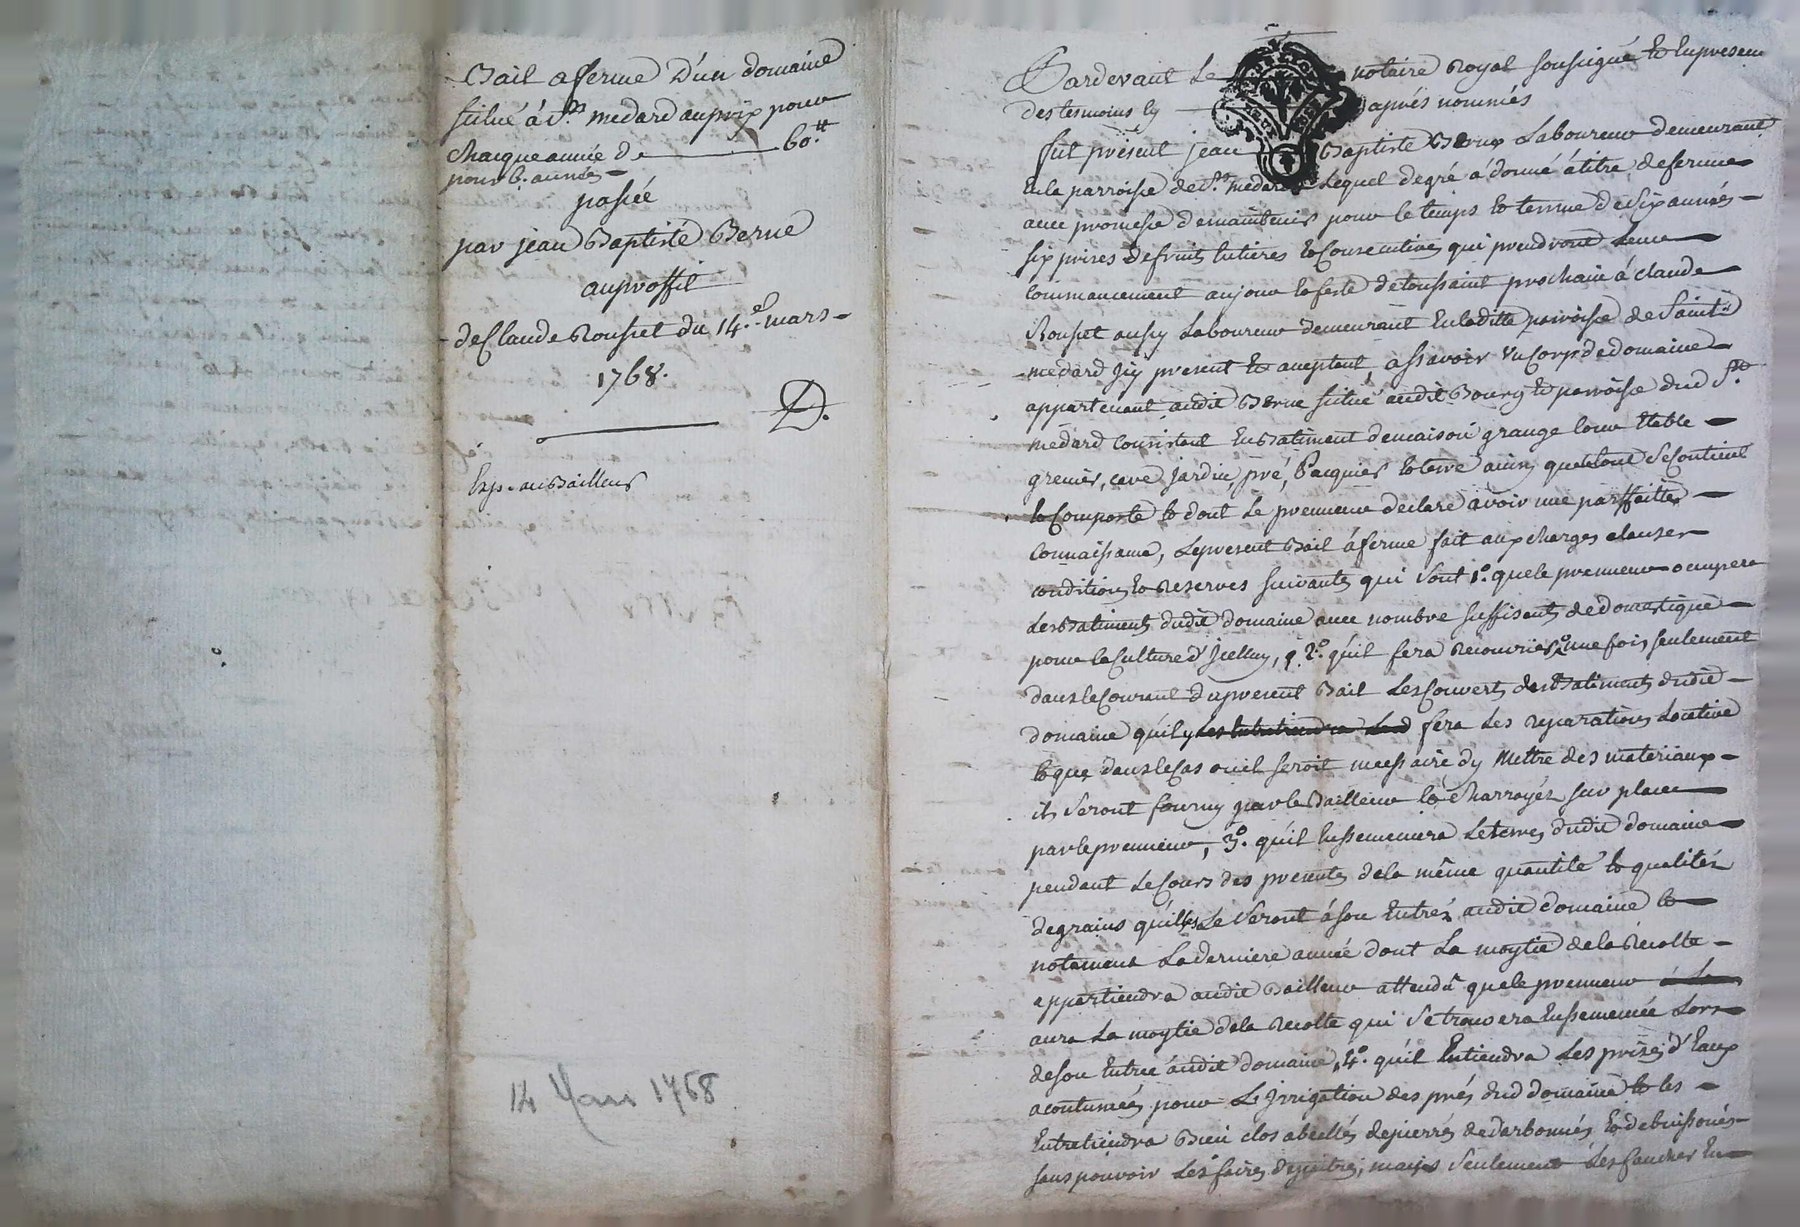 Bail a ferme D'un domaine
situé à St medard au prix pour
chacque année de 60 ₶
pour 6. années
passée
par jean Baptiste Berne
au proffit
de Claude Rousset du 14.e mars
1768.
D.
Exp. au Bailleur
14 Mars 1768
Pardevant Le notaire Royal soussigné Et En presence
des temoins cy aprés nommés
fut présent jean Baptiste Berne Laboureur demeurant
En la parroisse de St medard Lequel de gré á donné á titre de ferme
avec promesse de maintenir pour le temps Et terme de six années
six prises de fruits Entieres Et Consecutives qui prendront Leur
commancement au jour Et feste de toussaint prochain á Claude
Rousset aussy Laboureur demeurant En laditte parroisse de Saint
medard Jcy present Et acceptant, assavoir Un Corps de domaine
appartenant audit Berne situé audit Bourg Et parroisse dud St
medard Consistant En Batiment de maison grange Cour Etable
grenier, cave Jardin, pré, Pacquier Et terre ainsy que le tout Se Contient
Et Comporte Et dont Le prenneur declare avoir une parffaitte
Connaissance, Le present Bail á ferme fait aux charges clauses
conditions Et Reserves suivantes qui sont 1°. que le prenneur occupera
Les Batiments dudit domaine avec nombre suffisants de domestique
pour la Culture d'Jcelluy, 2°. qu'il fera Recouvrir une fois seulement
dans le Courant du present Bail Les Couverts des Batiments dudit
domaine qu'il y fera Les reparations Locative
Et que dans le Cas ou il seroit necessaire d'y Mettre des materiaux
ils Seront fourny par le Bailleur Et Charroyés sur place
par le prenneur, 3°. qu'il Enssemencera Le terres dudit domaine
pendant Le Cours des presentes de la même quantité Et qualités
de grains qu'illes Le Seront á son Entrés audit domaine Et
notament La derniere année dont La moytié de la Recolte
appartiendra audit Bailleur attendû que le prenneur
aura La moytié de la Recolte qui Se trouvera Enssemencée Lors
de son Entrée audit domaine, 4°. qu'il Entiendra Les prises d'Eaux
acoutumées pour L'Jrrigation des prés dud domaine Et les
Entretiendra Bien clos de pierres Et de buissons
sans pouvoir Les faires mais Seulement Les faucher En